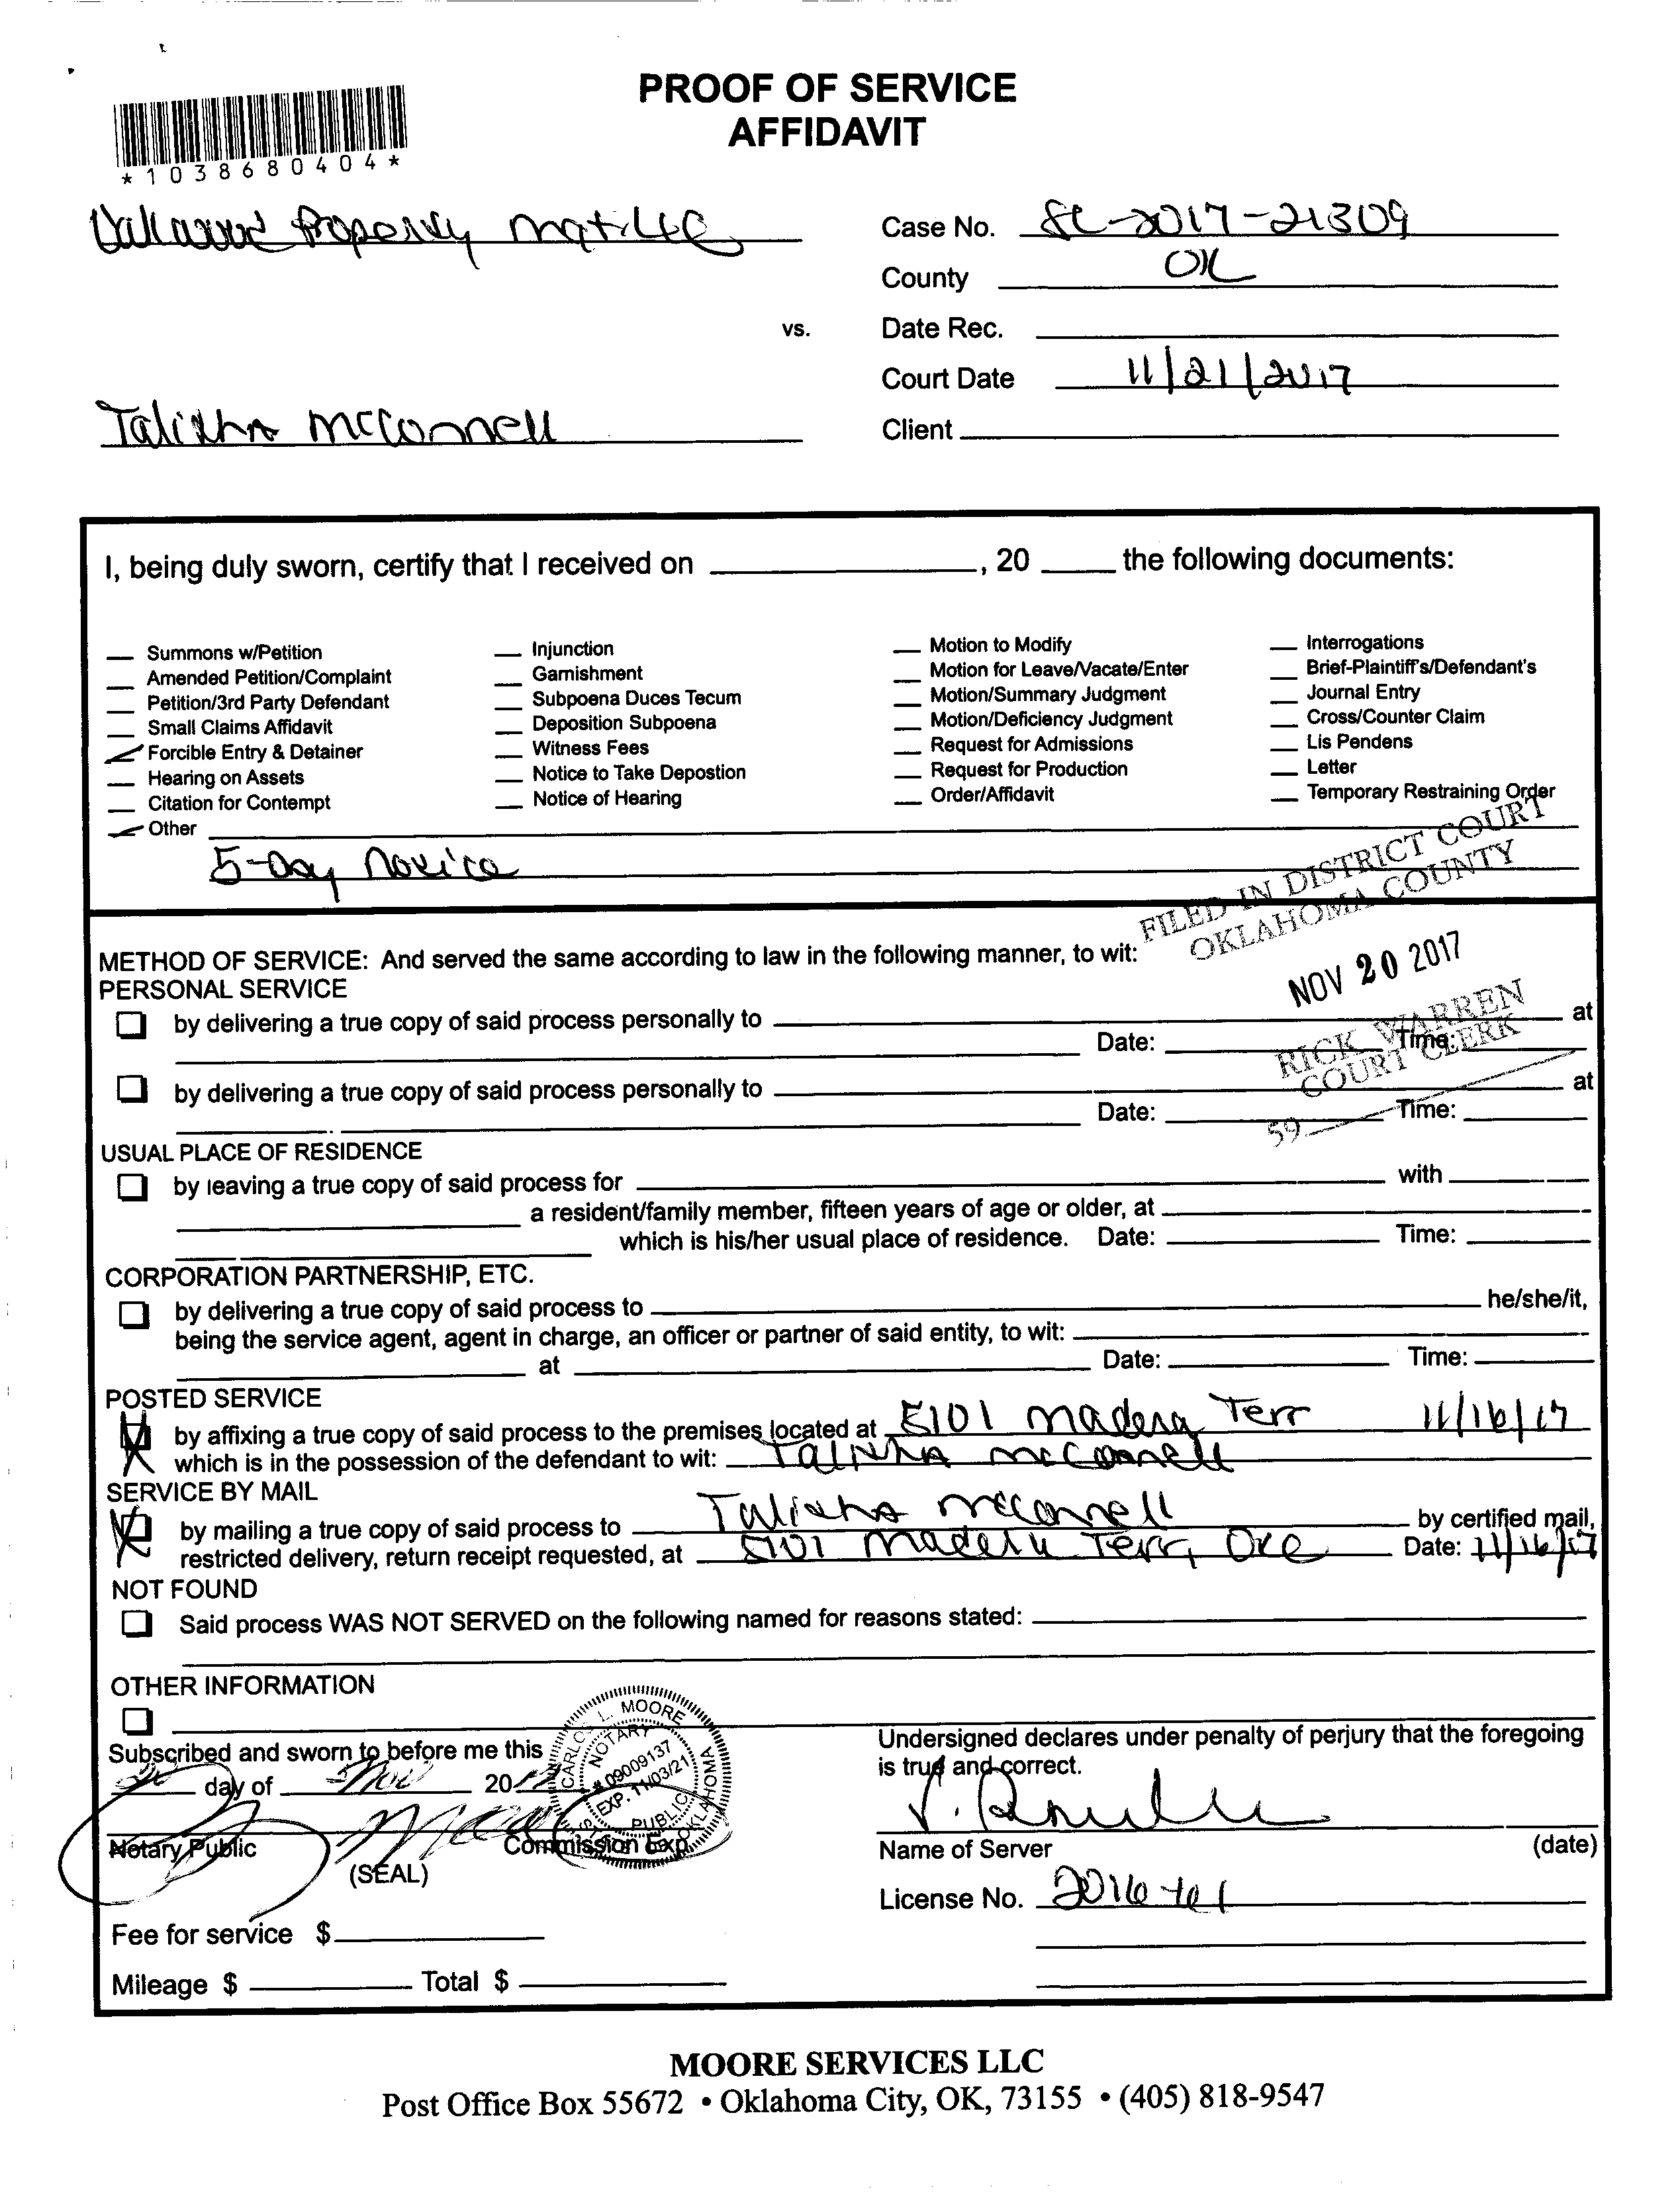 PROOF OF SERVICE
AFFIDAVIT
*1038680404*
Property mgt LLC
Case No. SC-2017-21309
County OK
vs.
Date Rec.
Court Date 11/21/2017
Talisha McConnell
Client
I, being duly sworn, certify that I received on , 20 the following documents:
Summons w/Petition
Amended Petition/Complaint
Petition/3rd Party Defendant
Small Claims Affidavit
Forcible Entry & Detainer
Hearing on Assets
Citation for Contempt
Other
Injunction
Garnishment
Subpoena Duces Tecum
Deposition Subpoena
Witness Fees
Notice to Take Depostion
Notice of Hearing
Motion to Modify
Motion for Leave/Vacate/Enter
Motion/Summary Judgment
Motion/Deficiency Judgment
Request for Admissions
Request for Production
Order/Affidavit
Interrogations
Brief-Plaintiff's/Defendant's
Journal Entry
Cross/Counter Claim
Lis Pendens
Letter
Temporary Restraining Order
5-Day Notice
FILED IN DISTRICT COURT
OKLAHOMA COUNTY
NOV 20 2017
RICK WARREN
COURT CLERK
59
METHOD OF SERVICE: And served the same according to law in the following manner, to wit:
PERSONAL SERVICE
by delivering a true copy of said process personally to at
Date: Time:
by delivering a true copy of said process personally to at
Date: Time:
USUAL PLACE OF RESIDENCE
by leaving a true copy of said process for with
a resident/family member, fifteen years of age or older, at
which is his/her usual place of residence. Date: Time:
CORPORATION PARTNERSHIP, ETC.
by delivering a true copy of said process to he/she/it,
being the service agent, agent in charge, an officer or partner of said entity, to wit:
at Date: Time:
POSTED SERVICE
by affixing a true copy of said process to the premises located at 5101 Madera Terr 11/16/17
which is in the possession of the defendant to wit: Talisha McConnell
SERVICE BY MAIL
by mailing a true copy of said process to Talisha McConnell by certified mail,
restricted delivery, return receipt requested, at 5101 Madera Terr, OKC Date: 11/16/17
NOT FOUND
Said process WAS NOT SERVED on the following named for reasons stated:
OTHER INFORMATION
Subscribed and sworn to before me this
day of Nov 2017
Notary Public
(SEAL)
Commission Exp.
CARLOS L. MOORE
NOTARY
# 09009137
EXP. 11/03/21
PUBLIC
OKLAHOMA
Undersigned declares under penalty of perjury that the foregoing
is true and correct.
Name of Server (date)
License No.
Fee for service $
Mileage $ Total $
MOORE SERVICES LLC
Post Office Box 55672 • Oklahoma City, OK, 73155 • (405) 818-9547